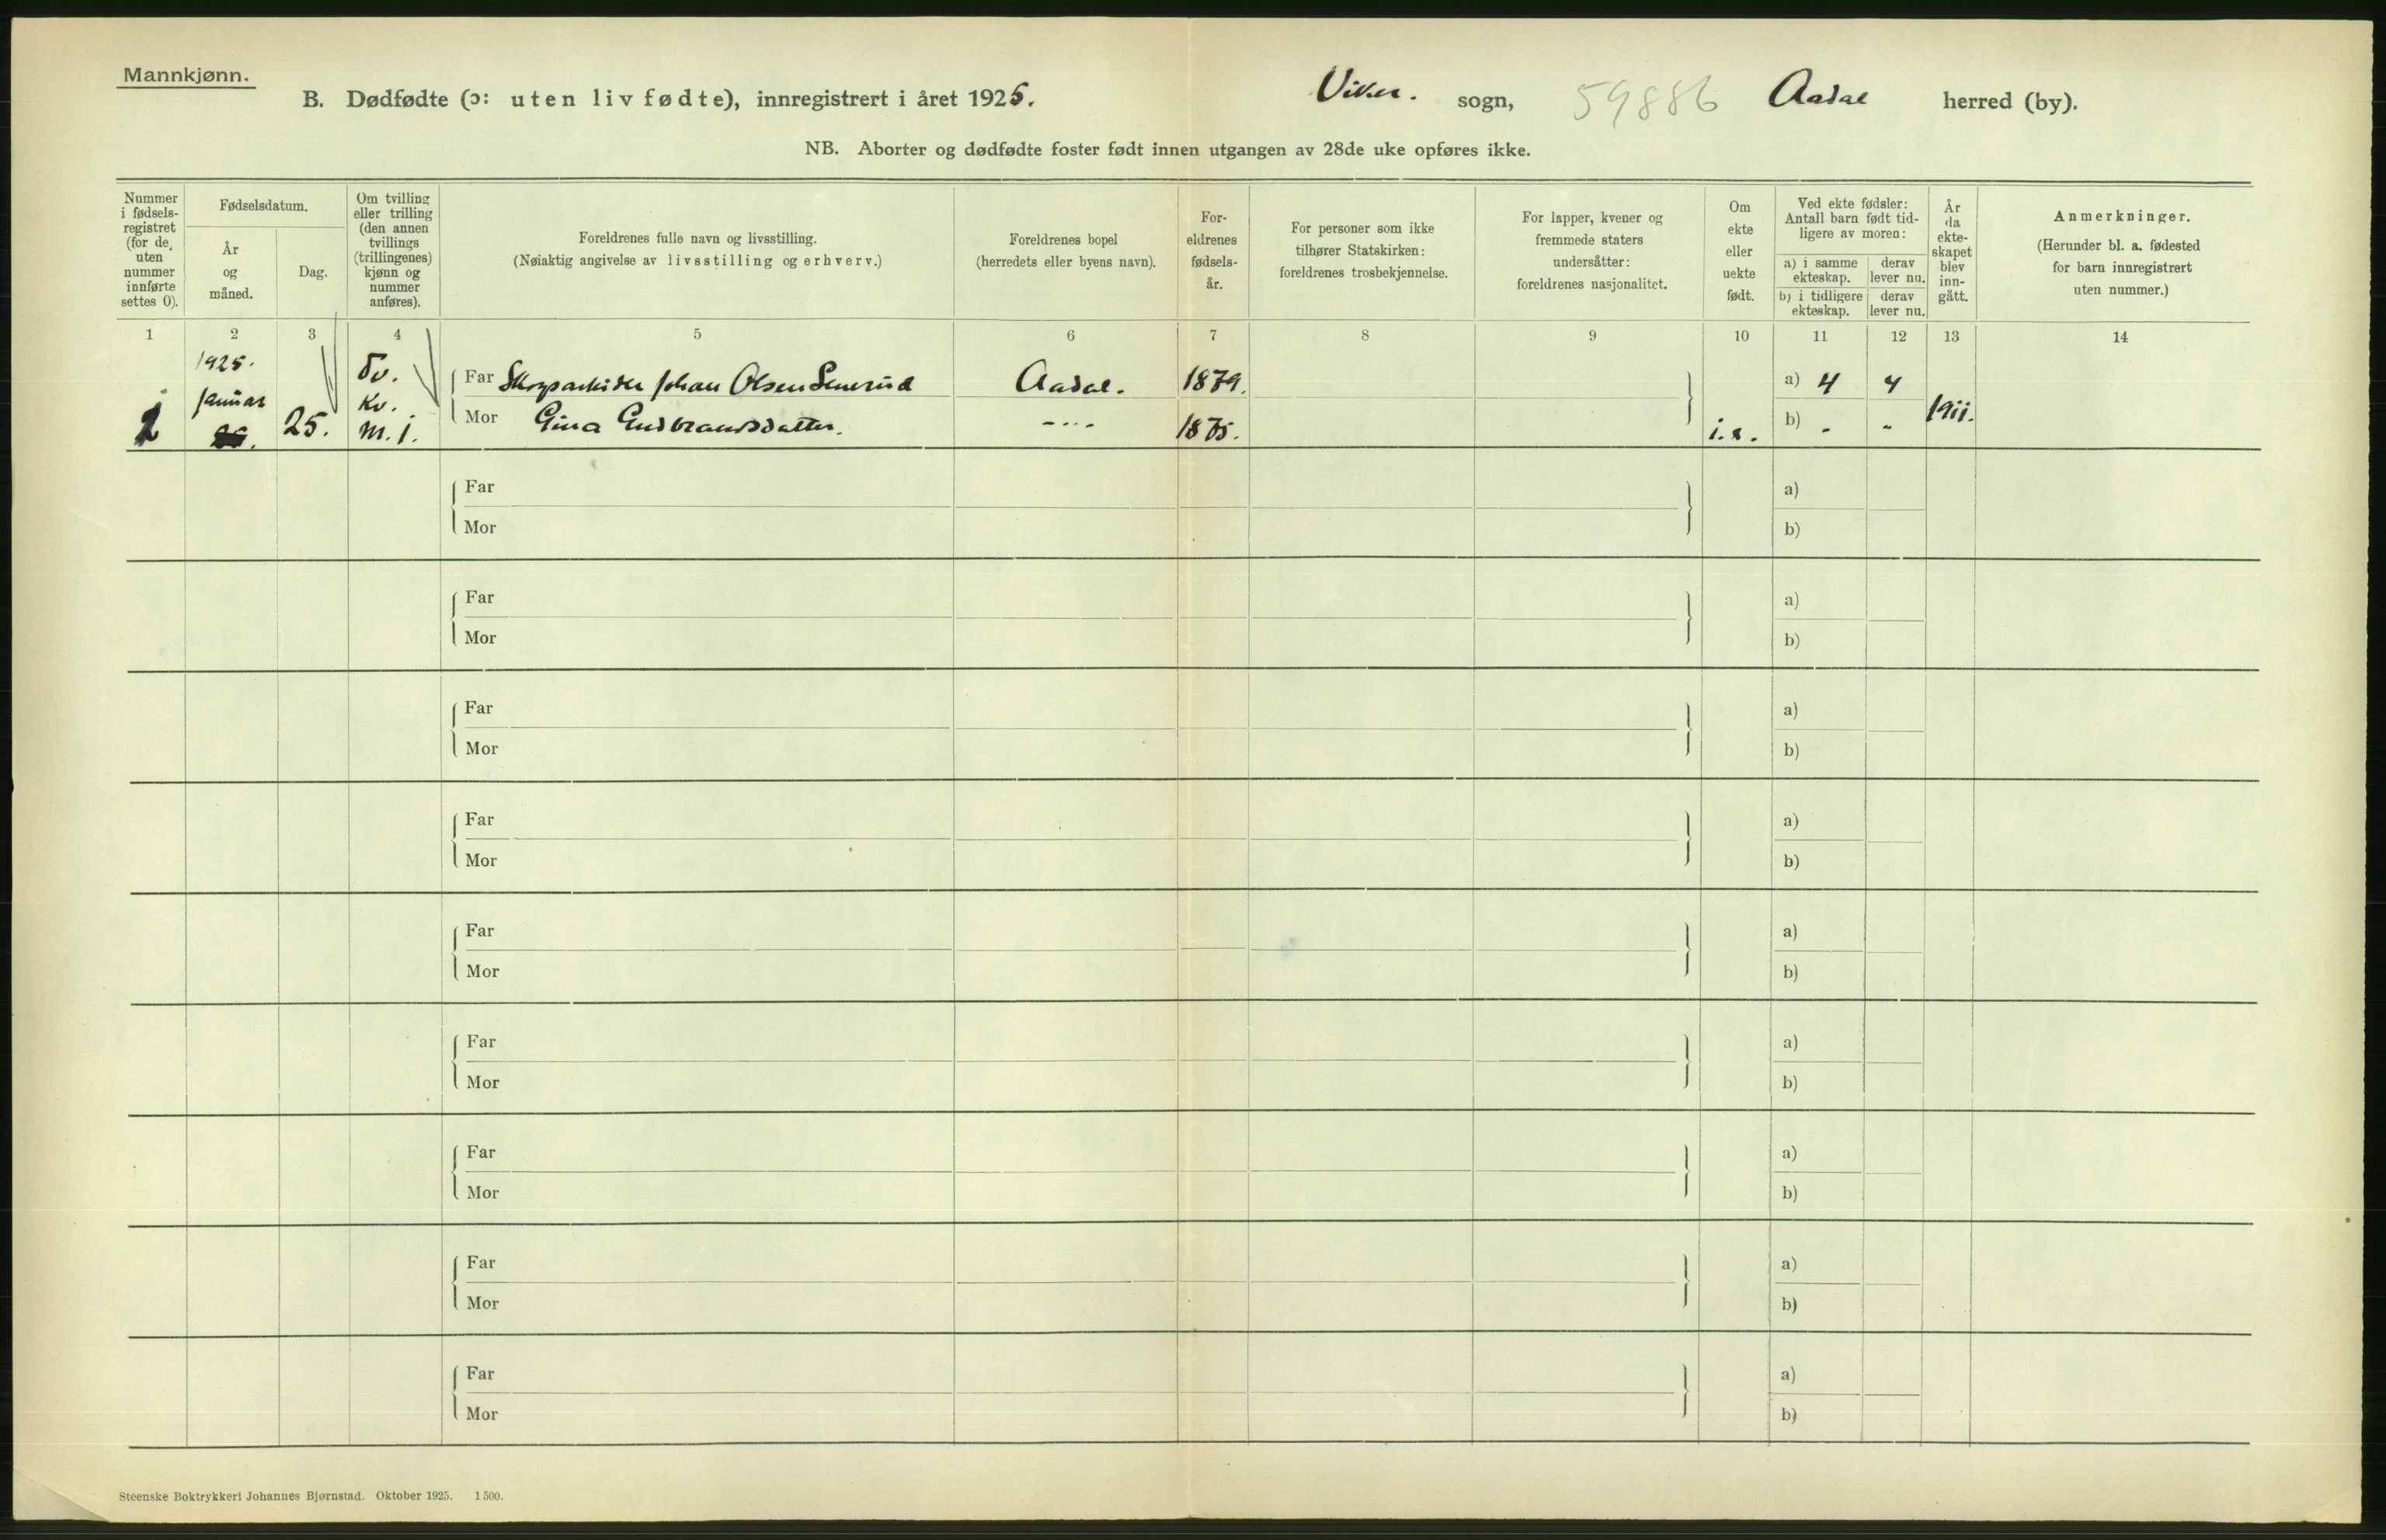 Mannkjønn.
B. Dødfødte (ɔ: uten liv fødte), innregistrert i året 1925. Viker. sogn, 59886 Aadal herred (by).
NB. Aborter og dødfødte foster født innen utgangen av 28de uke opføres ikke.
Nummer i fødsels- registret (for de uten nummer innførte settes 0).
Fødselsdatum.
År og måned.
Dag.
Om tvilling eller trilling (den annen tvillings (trillingenes) kjønn og nummer anføres).
Foreldrenes fulle navn og livsstilling.
(Nøiaktig angivelse av livsstilling og erhverv.)
Foreldrenes bopel
(herredets eller byens navn).
For- eldrenes fødsels- år.
For personer som ikke tilhører Statskirken: foreldrenes trosbekjennelse.
For lapper, kvener og fremmede staters undersåtter: foreldrenes nasjonalitet.
Om ekte eller uekte født.
Ved ekte fødsler: Antall barn født tid- ligere av moren:
a) i samme ekteskap. derav lever nu.
b) i tidligere ekteskap. derav lever nu.
År da ekte- skapet blev inn- gått.
Anmerkninger.
(Herunder bl. a. fødested for barn innregistrert uten nummer.)
1 2 3 4 5 6 7 8 9 10 11 12 13 14
1925. Tv.
Far Skogsarbeider Johan Olsen Senerud Aadal. 1879. a) 4 4
Januar Kv. 1911.
Mor Gina Gudbrandsdatter. -"- 1875. b) - -
1 25. M. 1. i. e.
Far a)
Mor b)
Far a)
Mor b)
Far a)
Mor b)
Far a)
Mor b)
Far a)
Mor b)
Far a)
Mor b)
Far a)
Mor b)
Far a)
Mor b)
Far a)
Mor b)
Steenske Boktrykkeri Johannes Bjørnstad. Oktober 1925. 1500.